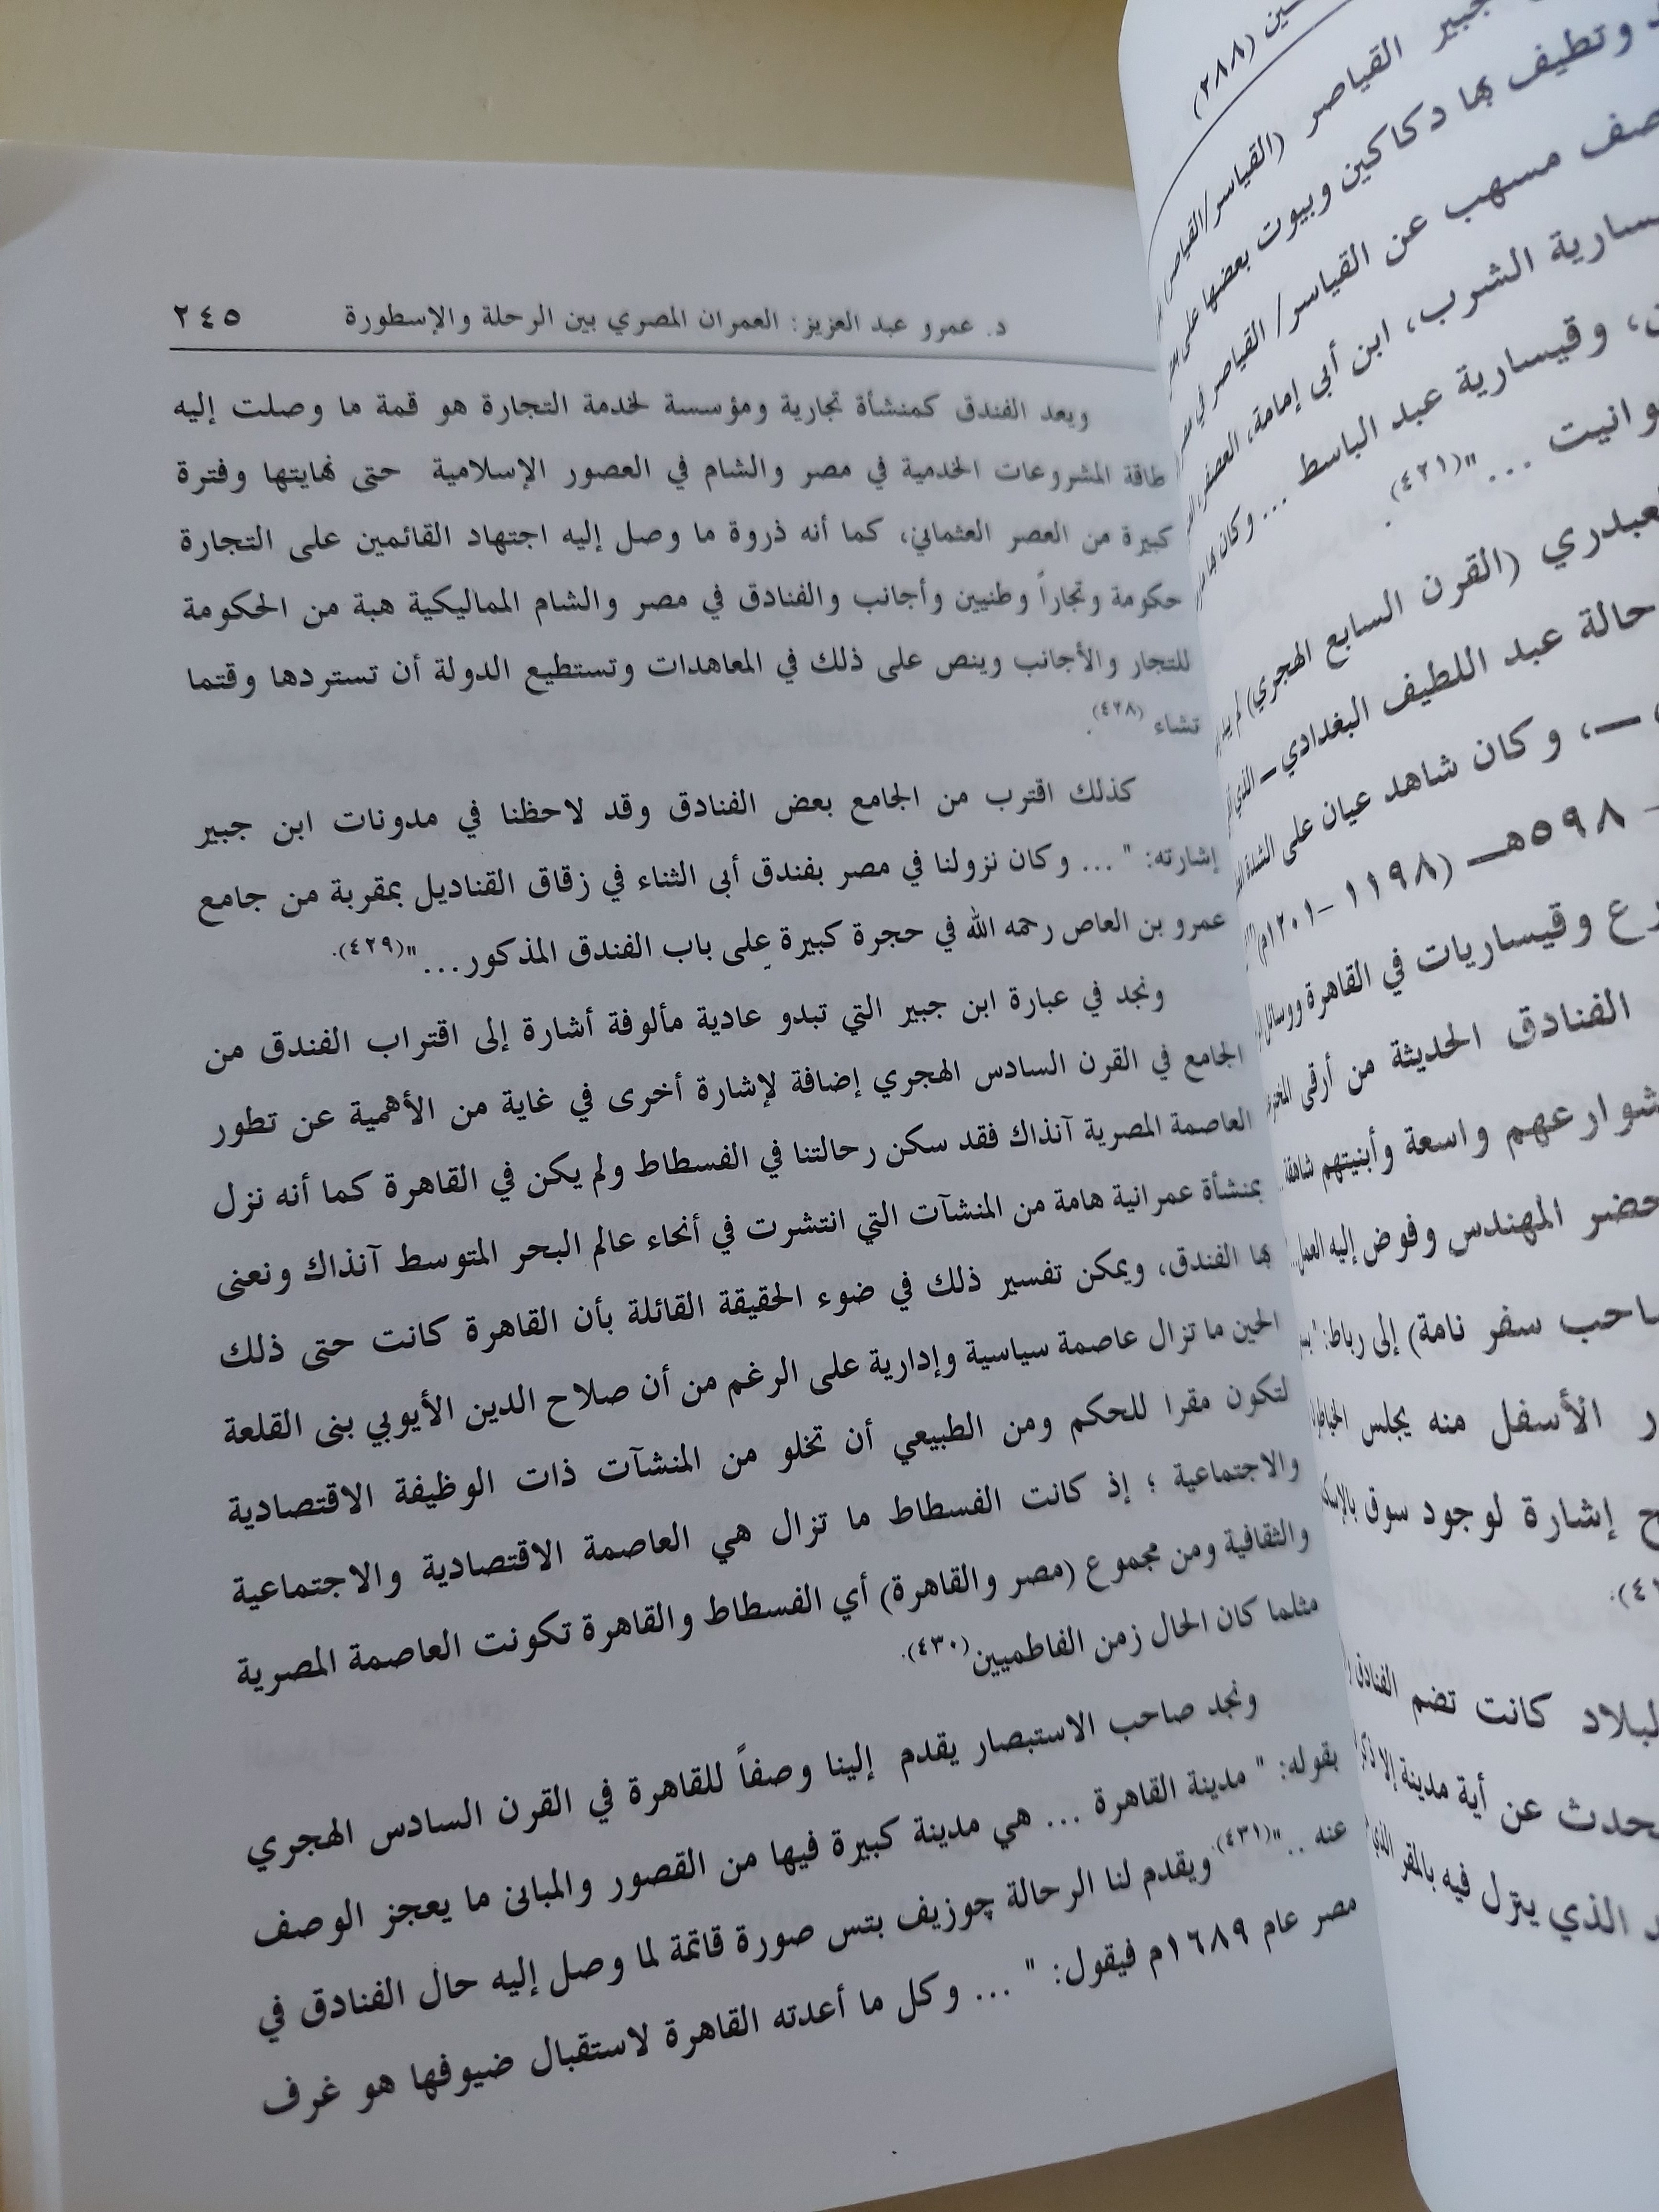 د. عمرو عبد العزيز: العمران المصري بين الرحلة والإسطورة ٢٤٥
ويعد الفندق كمنشأة تجارية ومؤسسة لخدمة التجارة هو قمة ما وصلت إليه
طاقة المشروعات الخدمية في مصر والشام في العصور الإسلامية حتى نهايتها وفترة
كبيرة من العصر العثماني، كما أنه ذروة ما وصل إليه اجتهاد القائمين على التجارة
حكومة وتجاراً وطنيين وأجانب والفنادق في مصر والشام المماليكية هبة من الحكومة
للتجار والأجانب وينص على ذلك في المعاهدات وتستطيع الدولة أن تستردها وقتما
تشاء (٤٢٨).
كذلك اقترب من الجامع بعض الفنادق وقد لاحظنا في مدونات ابن جبير
إشارته: " ... وكان نزولنا في مصر بفندق أبى الثناء في زقاق القناديل بمقربة من جامع
عمرو بن العاص رحمه الله في حجرة كبيرة على باب الفندق المذكور..."(٤٢٩).
ونجد في عبارة ابن جبير التي تبدو عادية مألوفة أشارة إلى اقتراب الفندق من
الجامع في القرن السادس الهجري إضافة لإشارة أخرى في غاية من الأهمية عن تطور
العاصمة المصرية آنذاك فقد سكن رحالتنا في الفسطاط ولم يكن في القاهرة كما أنه نزل
بمنشأة عمرانية هامة من المنشآت التي انتشرت في أنحاء عالم البحر المتوسط آنذاك ونعنى
بها الفندق، ويمكن تفسير ذلك في ضوء الحقيقة القائلة بأن القاهرة كانت حتى ذلك
الحين ما تزال عاصمة سياسية وإدارية على الرغم من أن صلاح الدين الأيوبي بنى القلعة
لتكون مقرا للحكم ومن الطبيعي أن تخلو من المنشآت ذات الوظيفة الاقتصادية
والاجتماعية ؛ إذ كانت الفسطاط ما تزال هي العاصمة الاقتصادية والاجتماعية
والثقافية ومن مجموع (مصر والقاهرة) أي الفسطاط والقاهرة تكونت العاصمة المصرية
مثلما كان الحال زمن الفاطميين(٤٣٠).
ونجد صاحب الاستبصار يقدم إلينا وصفاً للقاهرة في القرن السادس الهجري
بقوله: " مدينة القاهرة ... هي مدينة كبيرة فيها من القصور والمبانى ما يعجز الوصف
عنه .."(٤٣١).ويقدم لنا الرحالة چوزيف بتس صورة قاتمة لما وصل إليه حال الفنادق في
مصر عام ١٦٨٩م فيقول: " ... وكل ما أعدته القاهرة لاستقبال ضيوفها هو غرف
(٢٨٨)
جبير القياصر (القياسر/القياصر)
وتطيف بها دكاكين وبيوت بعضها على
مسهب عن القياسر/ القياصر في
الشرب، ابن أبى إمامة، العصفر،
وقيسارية عبد الباسط ... وكان بها
..."(٤٢١).
(القرن السابع الهجري) لم
عبد اللطيف البغدادي – الذي
وكان شاهد عيان على الشدة
٥٩٨هـ (١١٩٨ – ١٢٠١م)
وقيساريات في القاهرة ووسائل
الفنادق الحديثة من أرقى
واسعة وأبنيتهم شاهقة
المهندس وفوض إليه العمل
سفر نامة) إلى رباط:
الأسفل منه يجلس الخياطون
إشارة لوجود سوق
كانت تضم الفنادق
عن أية مدينة إلا
الذي ينزل فيه بالمقر الذي